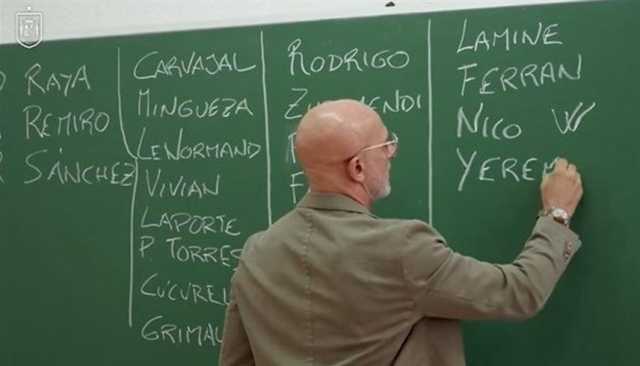 RAYA
REMIRO
SÁNCHEZ
CARVAJAL
MINGUEZA
LENORMAND
VIVIAN
LAPORTE
P. TORRES
CUCUREL
GRIMAL
RODRIGO
LAMINE
FERRAN
NICO W
YERE